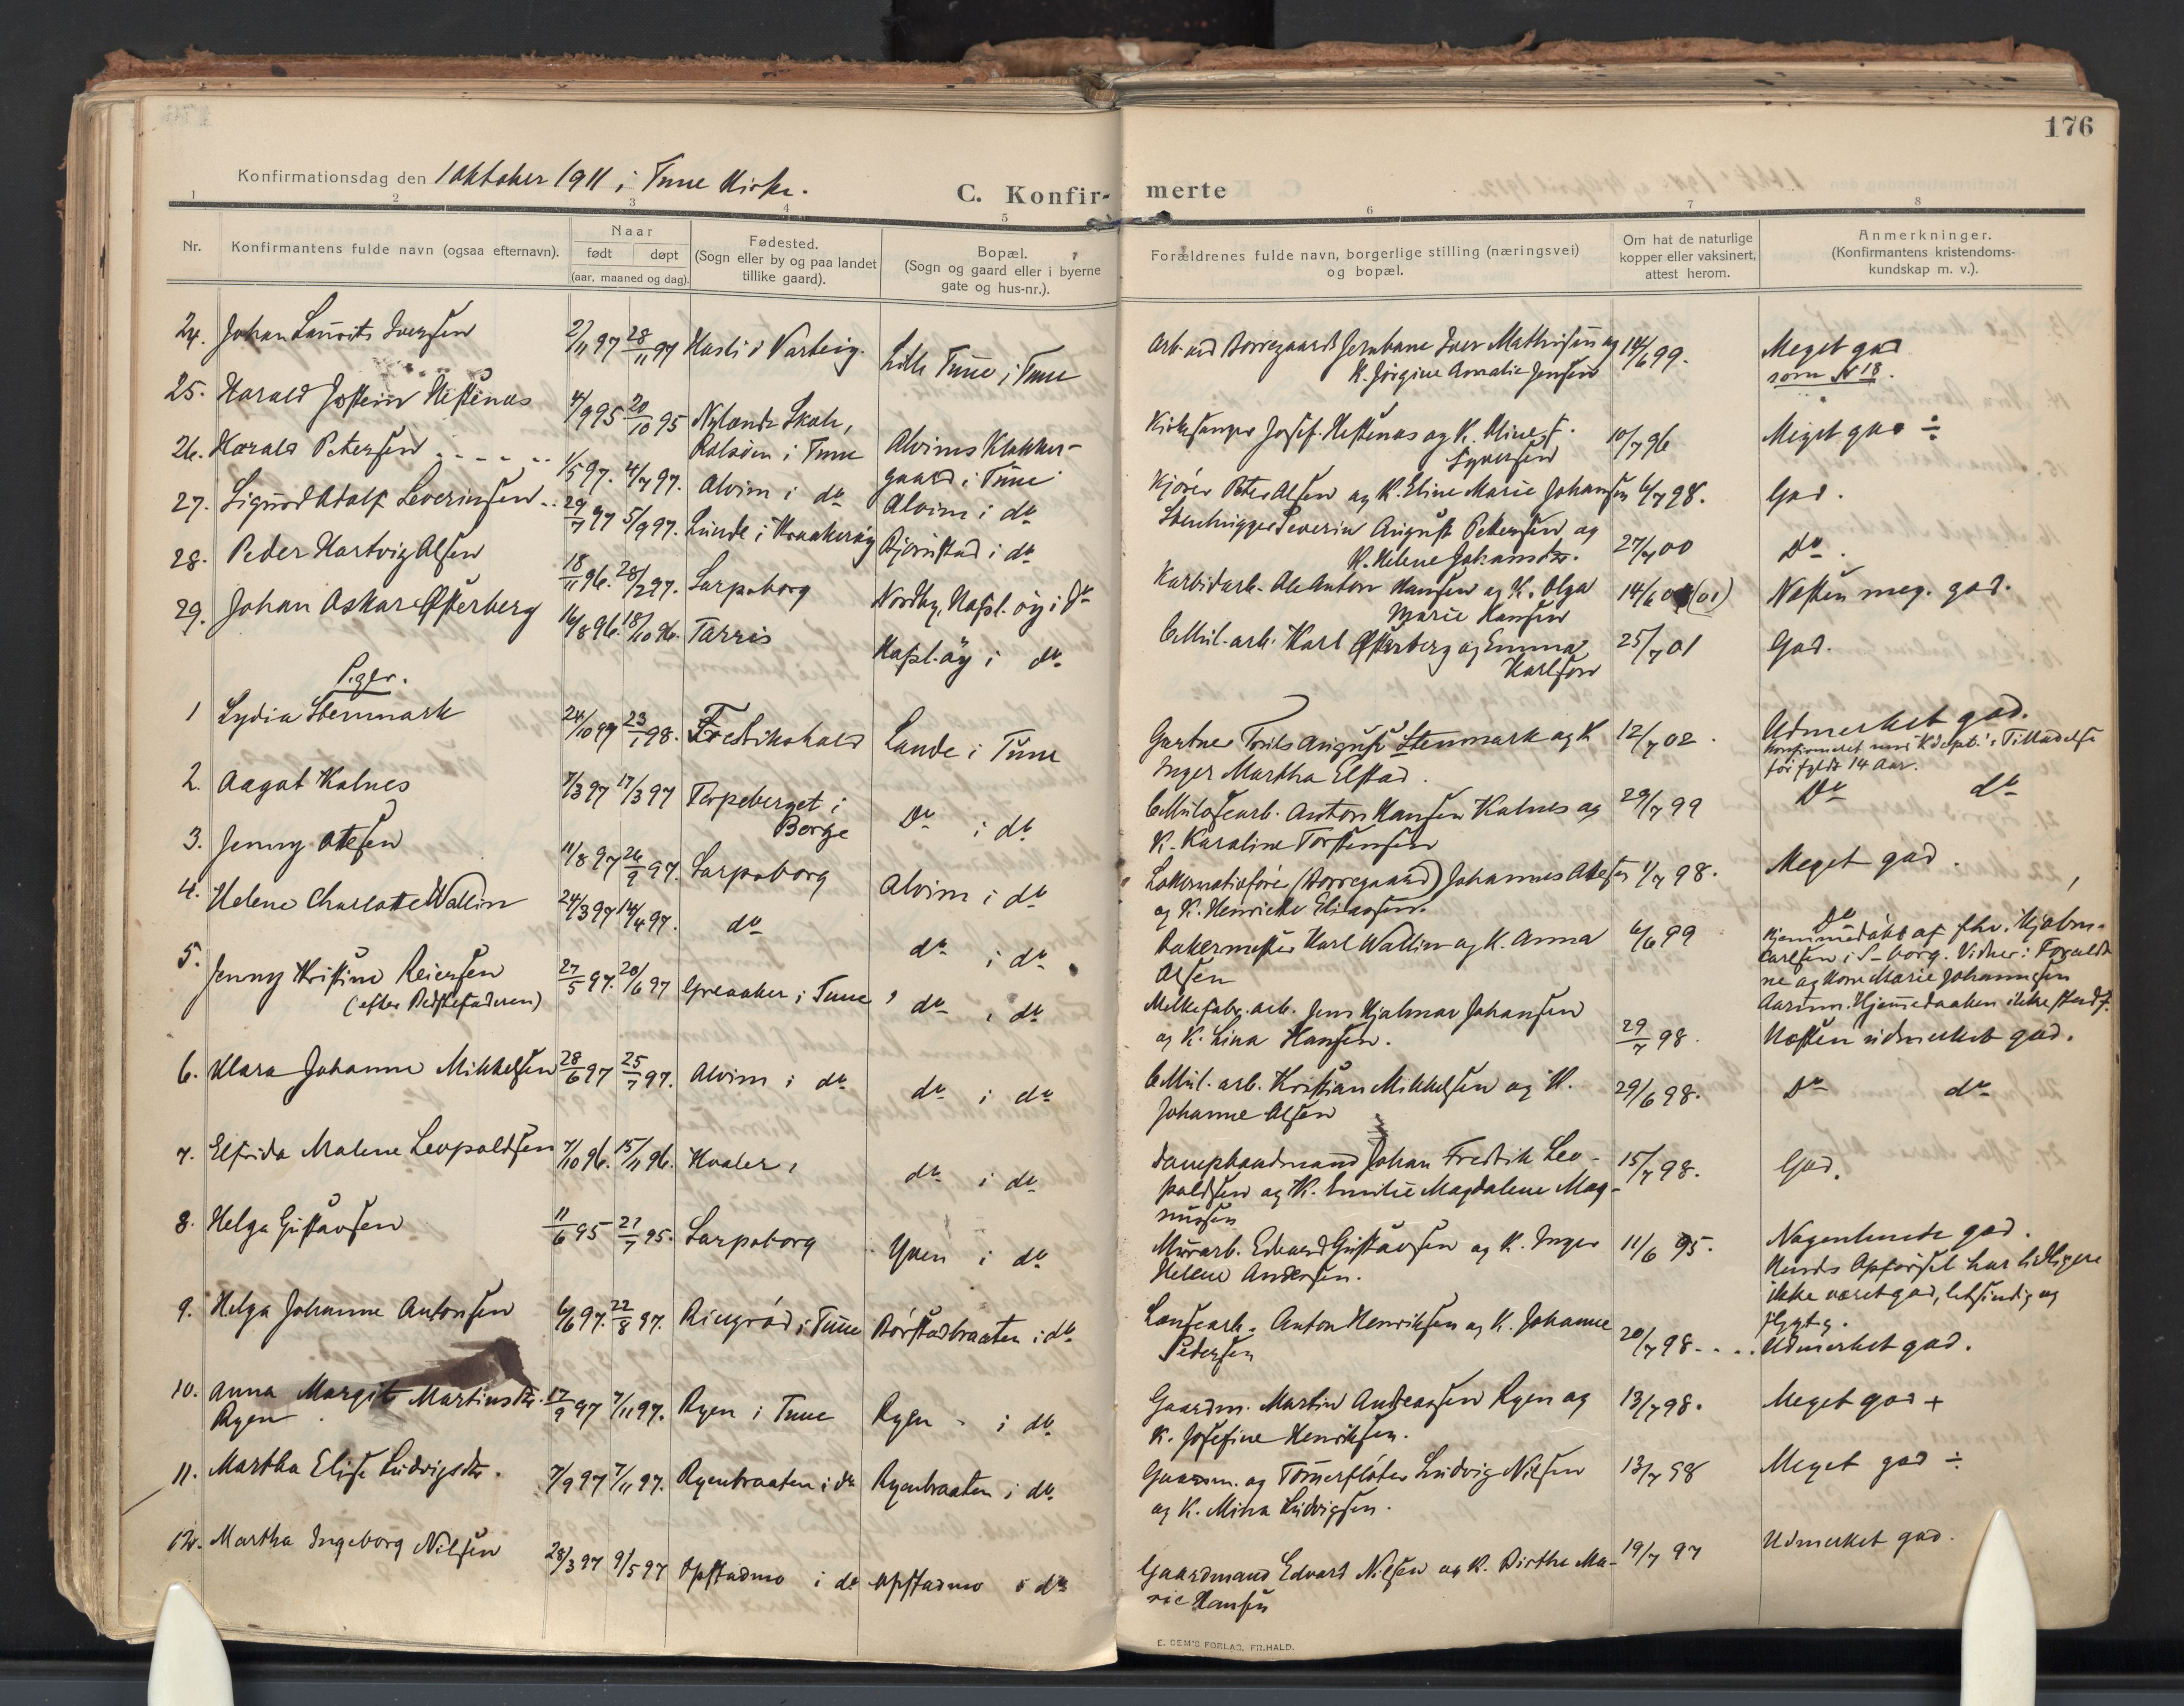 176
Konfirmationsdag den 1 Oktober 1911 i Tune Kirke.
C. Konfir- merte
1 2 3 4 5 6 7 8
Nr.
Konfirmantens fulde navn (ogsaa efternavn).
Naar
født døpt
(aar, maaned og dag).
Fødested.
(Sogn eller by og paa landet
tillike gaard).
Bopæl.
(Sogn og gaard eller i byerne
gate og hus-nr.).
Forældrenes fulde navn, borgerlige stilling (næringsvei)
og bopæl.
Om hat de naturlige
kopper eller vaksinert,
attest herom.
Anmerkninger.
(Konfirmantens kristendoms-
kundskap m. v.).
24. Johan Laurits Iversen 28/11 97 Hasli i Varteig. Lille Tune i Tune Arb. ved Borregaards Jernbane Iver Mathisen og 14/6 99. Meget god
K. Jørgine Amalie Jensen som Nr 18.
25. Harald Jostein Hestenæs 4/9 95 20/10 95 Nylands Skole, Alvims Klokker- Kirkesanger Josef Hestenæs og K. 10/7 96 Meget god ÷
Rolsøen i Tune gaard i Tune Syversen
26. Harald Petersen 1/5 97. 4/7 97. Alvim i do Alvim i do Kjører Peter Olsen og K. Eline Marie Johansen 6/7 98. God.
27. Sigurd Adolf Severinsen 29/7 97 5/9 97. Lunde i Kraakerøy Bjørnstad i do Stenhugger Severin August Pettersen og 27/7 00 Do.
K. Helene Johansdtr.
28. Peder Hartvig Olsen 18/11 96. 28/2 97. Sarpsborg Nordby, Hafsl. øy i do Karbidarb. Ole Anton Hansen og K. Olga 14/6 (01) Næsten meg. god.
Marie Hansen
29. Johan Oskar Østerberg 16/8 96. 18/10 96. Tarris Hafsl. øy i do Cellul. arb. Karl Østerberg og Emma 25/7 01 God.
Karlson
Piger.
1 Lydia Stenmark 24/10 97 23/1 98. Fredrikshald Lande i Tune Gartner Frits August Stenmark og K. 12/7 02. Udmerket god.
Inger Martha Elstad. Konfirmeret med K.dept.'s Tilladelse
før fyldt 14 Aar.
2. Aagot Kalnes 7/3 97 17/3 97 Torpeberget i Do i do Cellulosearb. Anton Hansen Kalnes og 29/7 99 Do do
Borge K. Karoline Torstensen
3. Jenny Olesen 11/8 97 26/9 97. Sarpsborg Alvim i do Lokomotivfører (Borregaard) Johannes Olesen 1/7 98. Meget god.
og K. Henriette Eliassen.
4. Helene Charlotte Wallin 24/3 97 14/4 97. do do i do Bakermester Karl Wallin og K. Anna 6/6 99 Do
Olsen Hjemmedøbt af fhv. Hjalm.
Carlsen i S-borg. Vidner: Foreldr
ne og Kone Marie Johannesen
Aarum. Hjemmedaaben ikke stadf.
5. Jenny Kristine Reiersen 27/5 97. 20/6 97 Greaaker i Tune do i do Melkefabr. arb. Jens Hjalmar Johansen
(efter Bedstefaderen) og K. Lina Hansen. 29/7 98. Næsten udmerket god.
6. Klara Johanne Mikkelsen 28/6 97 25/7 97. Alvim i do do i do Cellul. arb. Kristian Mikkelsen og K. 29/6 98. Do do
Johanne Olsen
7. Elfrida Malene Leopoldsen 7/10 96. 15/11 96. Hvaler do i do Dampbaadmand Johan Fredrik Leo- 15/7 98. God.
poldsen og K. Emilie Magdalene Mag-
nussen
8. Helga Gustavsen 11/6 95 21/7 95. Sarpsborg Yven i do Murarb. Edvard Gustavsen og K. Inger 11/6 95. Nogenlunde god.
Helene Andersen. Hendes Opførsel har tidligere
ikke været god, letsindig og
9. Helga Johanne Antonsen 6/6 97. 22/8 97. Ringrød i Tune Børstadbraaten i do Anton Henriksen og K. Johanne
Pedersen 20/7 98. Udmerket god.
10. Anna Margit Martinsdtr. 17/9 97 7/11 97. Ryen i Tune Ryen i do Gaardm. Martin Andreassen Ryen og 13/7 98. Meget god +
Ryen K. Josefine Henriksen.
11. Martha Elise Ludvigsdtr. 7/9 97 7/11 97. Ryenbraaten i do Ryenbraaten i do Gaardm. og Tømmerfløter Ludvig Nilsen 13/7 98 Meget god ÷
og K. Mina Ludvigsen.
12. Martha Ingeborg Nilsen 28/3 97 9/5 97 Opstadmo i do Opstadmo i do Gaardmand Edvard Nilsen og K. Birthe Ma- 19/7 97 Udmerket god.
rie Hansen
E. SEM'S FORLAG, FR.HALD.